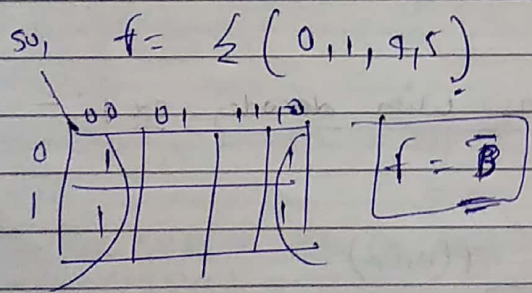 so, f = Σ ( 0, 1, 4, 5 )
00 01 11 10
0 1 1
1 1 1
f = B̅